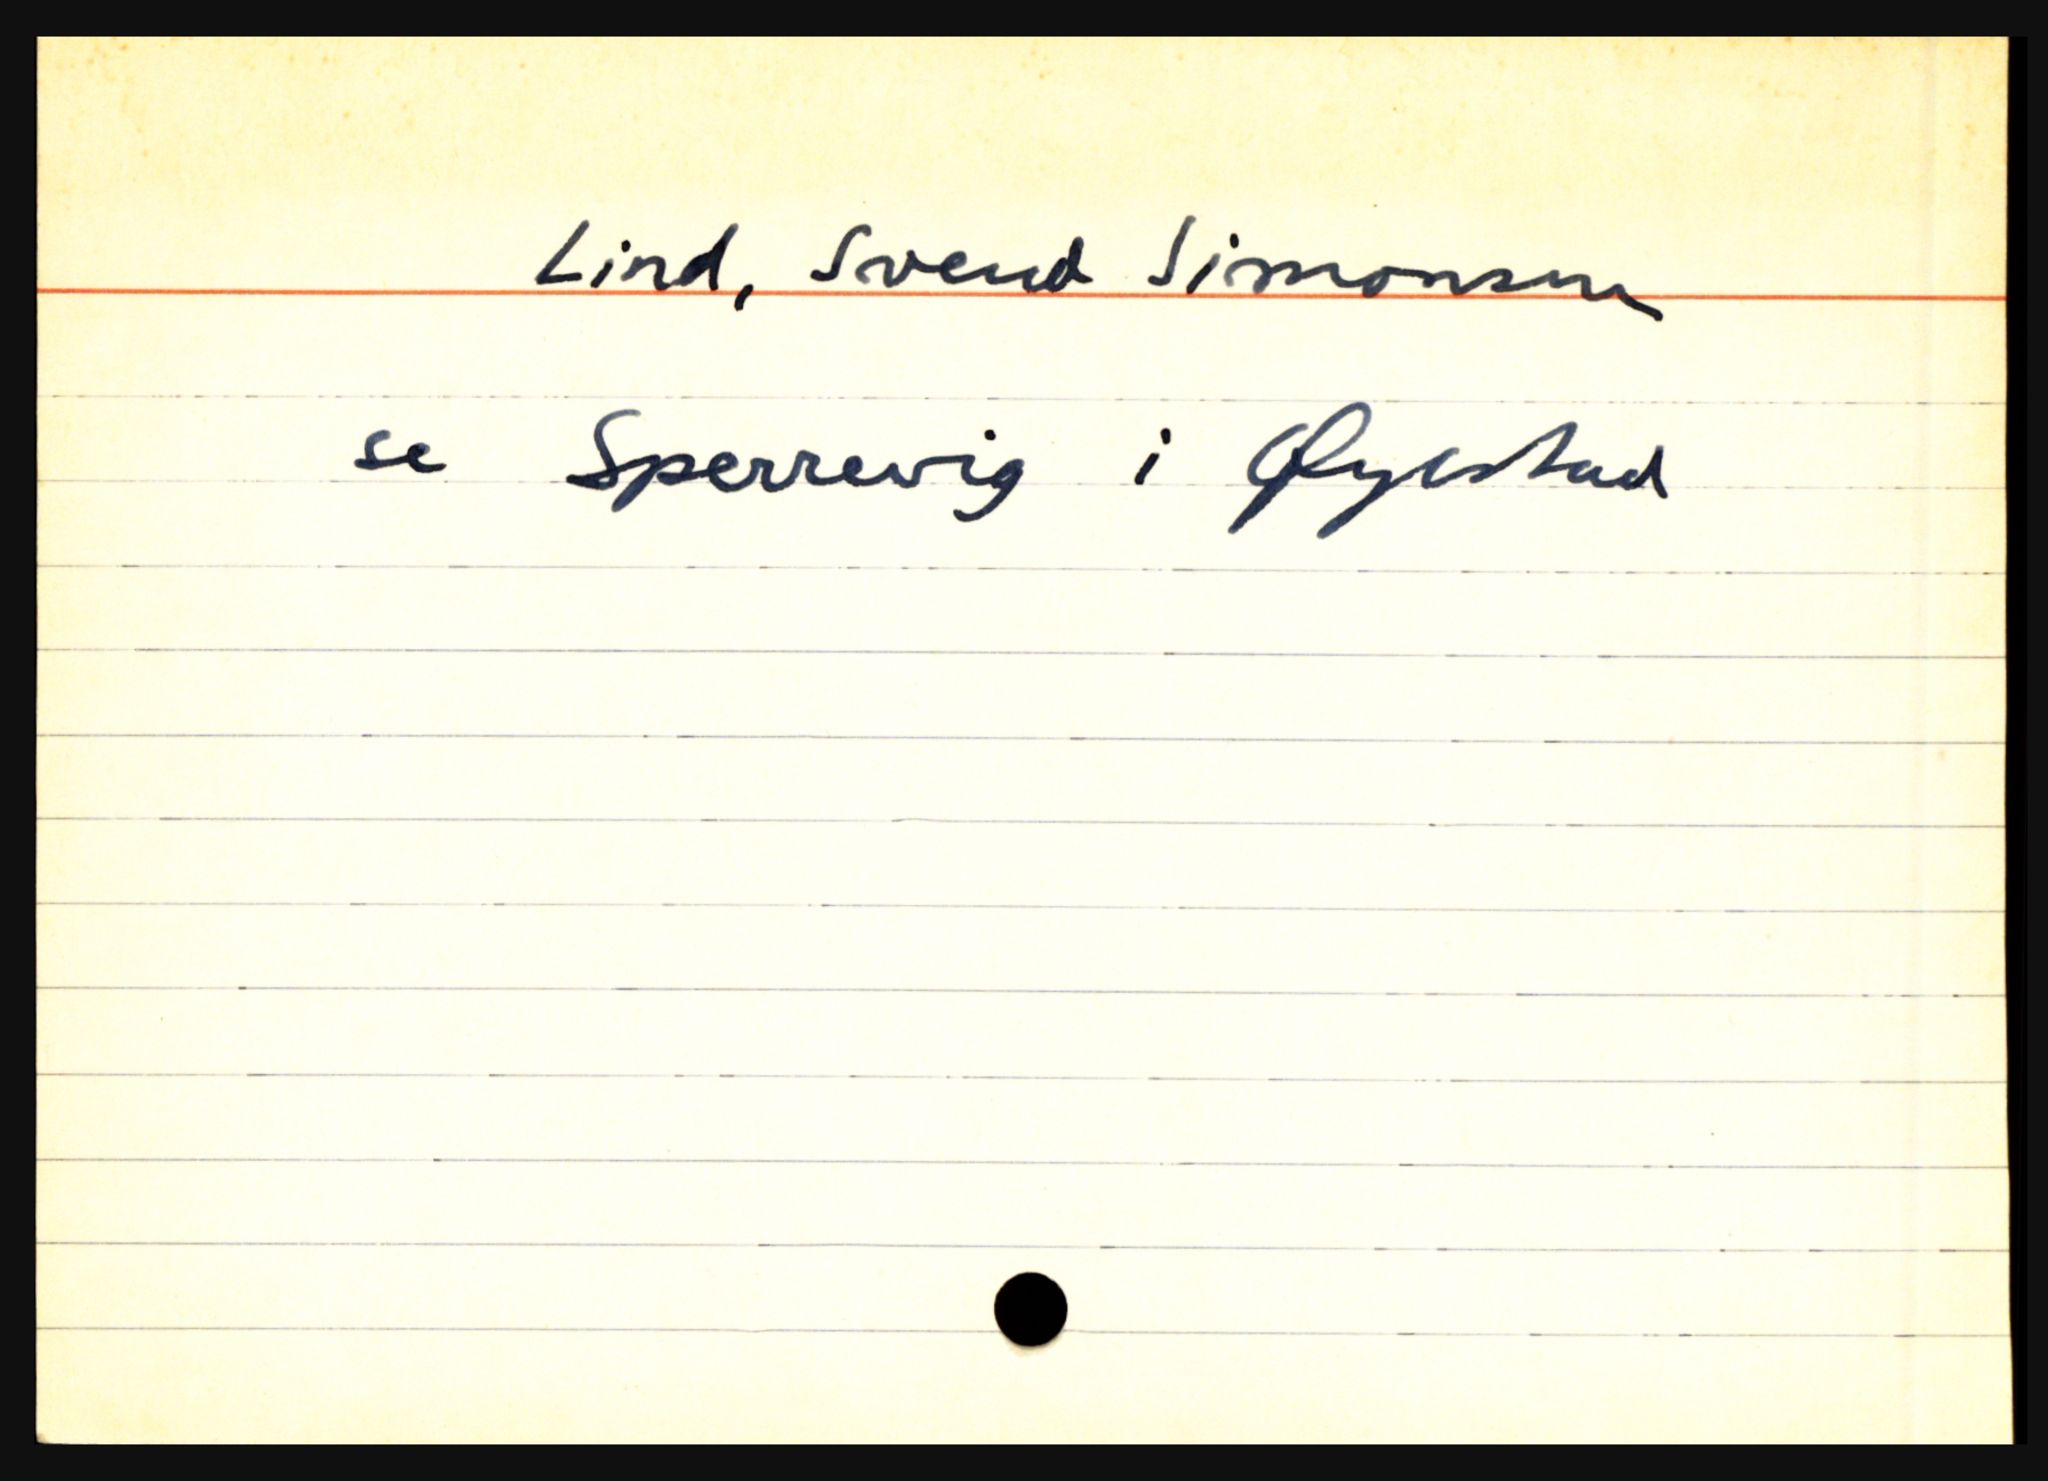 Lind, Svend Simonsen
se Sperrevig i Øyestad